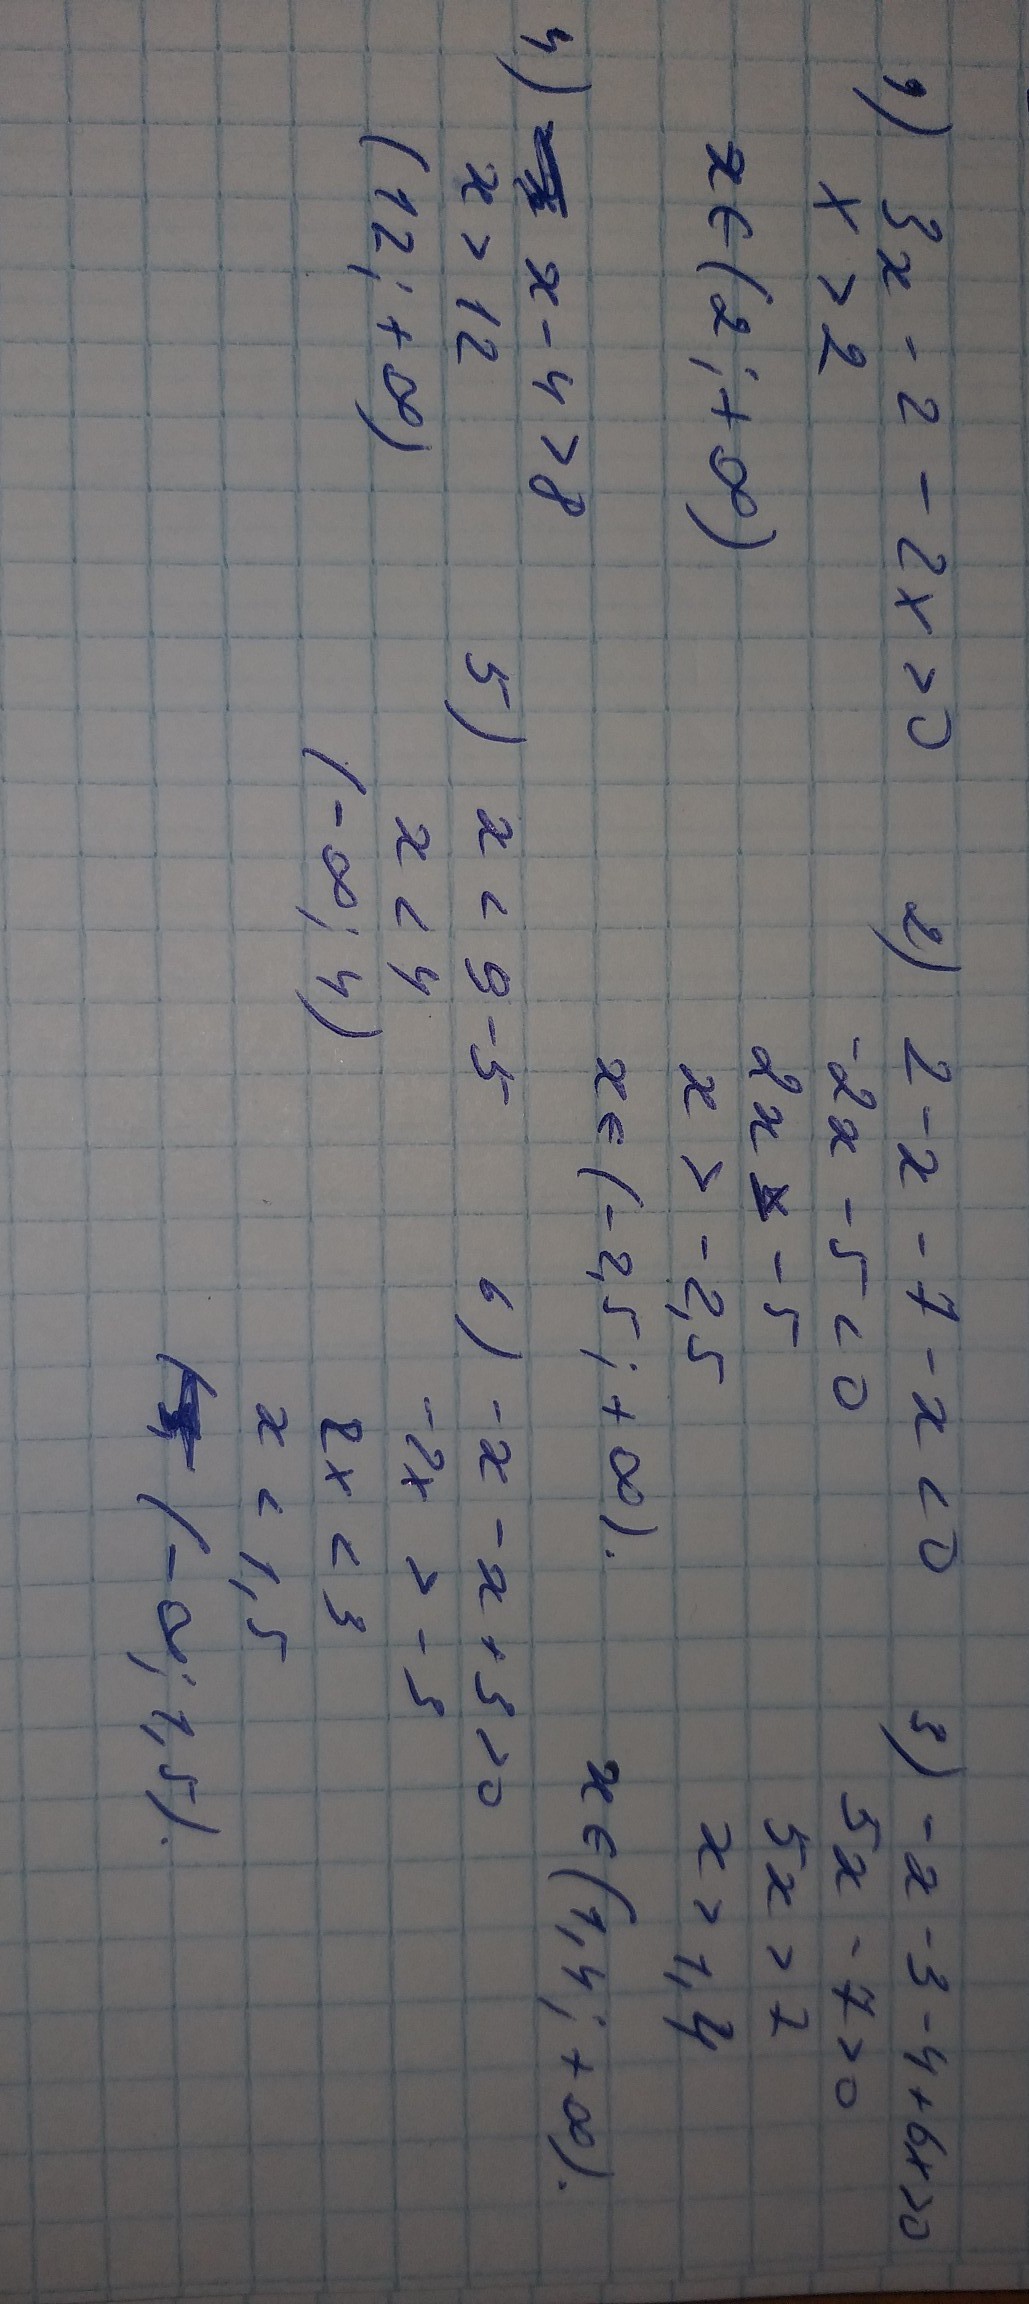 1) 3x - 2 - 2x > 0
x > 2
x ∈ (2; + ∞)
2) 2 - x - 7 - x < 0
-2x - 5 < 0
2x - 5
x > - 2,5
x ∈ (- 2,5; + ∞).
3) - x - 3 - 4 + 6x > 0
5x - 7 > 0
5x > 7
x > 1,4
x ∈ (1,4; + ∞).
4) x - 4 > 8
x > 12
(12; + ∞)
5) x < 9 - 5
x < 4
(- ∞; 4)
6) - x - x + 3 > 0
- 2x > - 3
2x < 3
x < 1,5
(- ∞; 1,5).